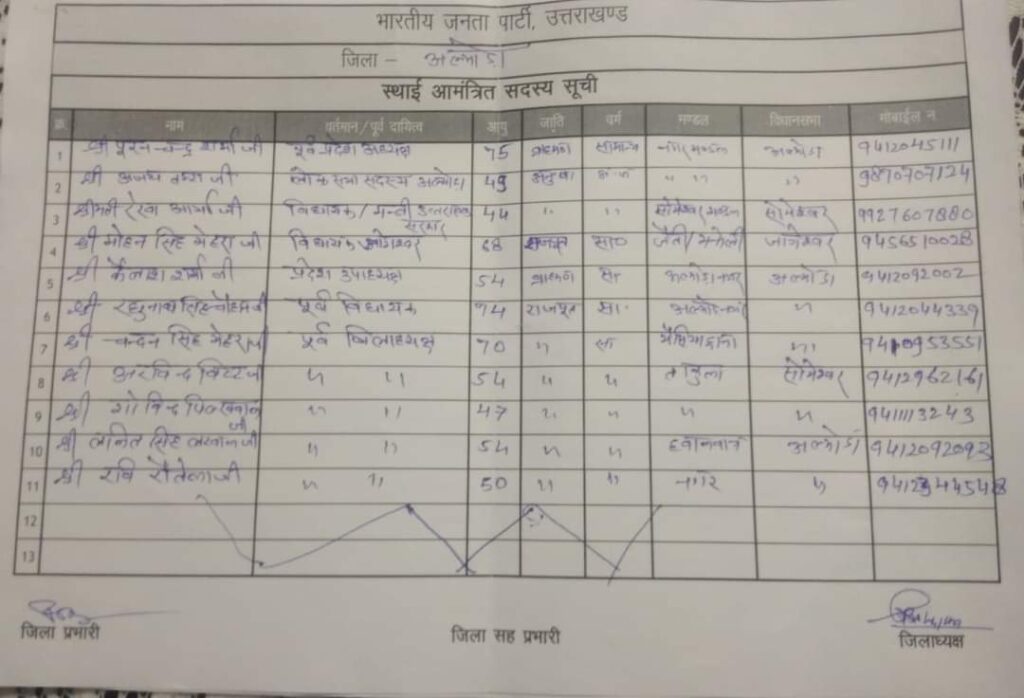 भारतीय जनता पार्टी, उत्तराखण्ड
जिला - अल्मोड़ा
स्थाई आमंत्रित सदस्य सूची
क्र. नाम वर्तमान/पूर्व दायित्व आयु जाति वर्ग मण्डल विधानसभा मोबाईल न
1 श्री पूरन चन्द्र शर्मा जी पूर्व प्रदेश अध्यक्ष 75 ब्राह्मण सामान्य नगर मण्डल अल्मोड़ा 9412045111
2 श्री अजय टम्टा जी लोक सभा सदस्य अल्मोड़ा 49 " " " " 9870707124
3 श्रीमती रेखा आर्या जी विधायक/मन्त्री उत्तराखण्ड सरकार 44 " " सोमेश्वर मण्डल सोमेश्वर 9927607880
4 श्री मोहन सिंह मेहरा जी विधायक जागेश्वर 68 राजपूत सा० जैंती/ जागेश्वर 9456510028
5 श्री कैलाश शर्मा जी प्रदेश उपाध्यक्ष 54 ब्राह्मण सा. अल्मोड़ा नगर अल्मोड़ा 9412092002
6 श्री रघुनाथ सिंह चौहान जी पूर्व विधायक 74 राजपूत सा. अल्मोड़ा नगर " 9412044339
7 श्री चन्दन सिंह मेहरा जी पूर्व जिलाध्यक्ष 70 " सा " 9410953551
8 श्री अरविन्द बिष्ट जी " " 54 " " ताकुला सोमेश्वर 9412962161
9 श्री गोविन्द पिलख्वाल जी " " 47 " " " " 9411113243
10 श्री ललित सिंह लटवाल जी " " 54 " " हवालबाग अल्मोड़ा 9412092093
11 श्री रवि रौतेला जी " " 50 " " नगर "
12
13
जिला प्रभारी जिला सह प्रभारी जिलाध्यक्ष